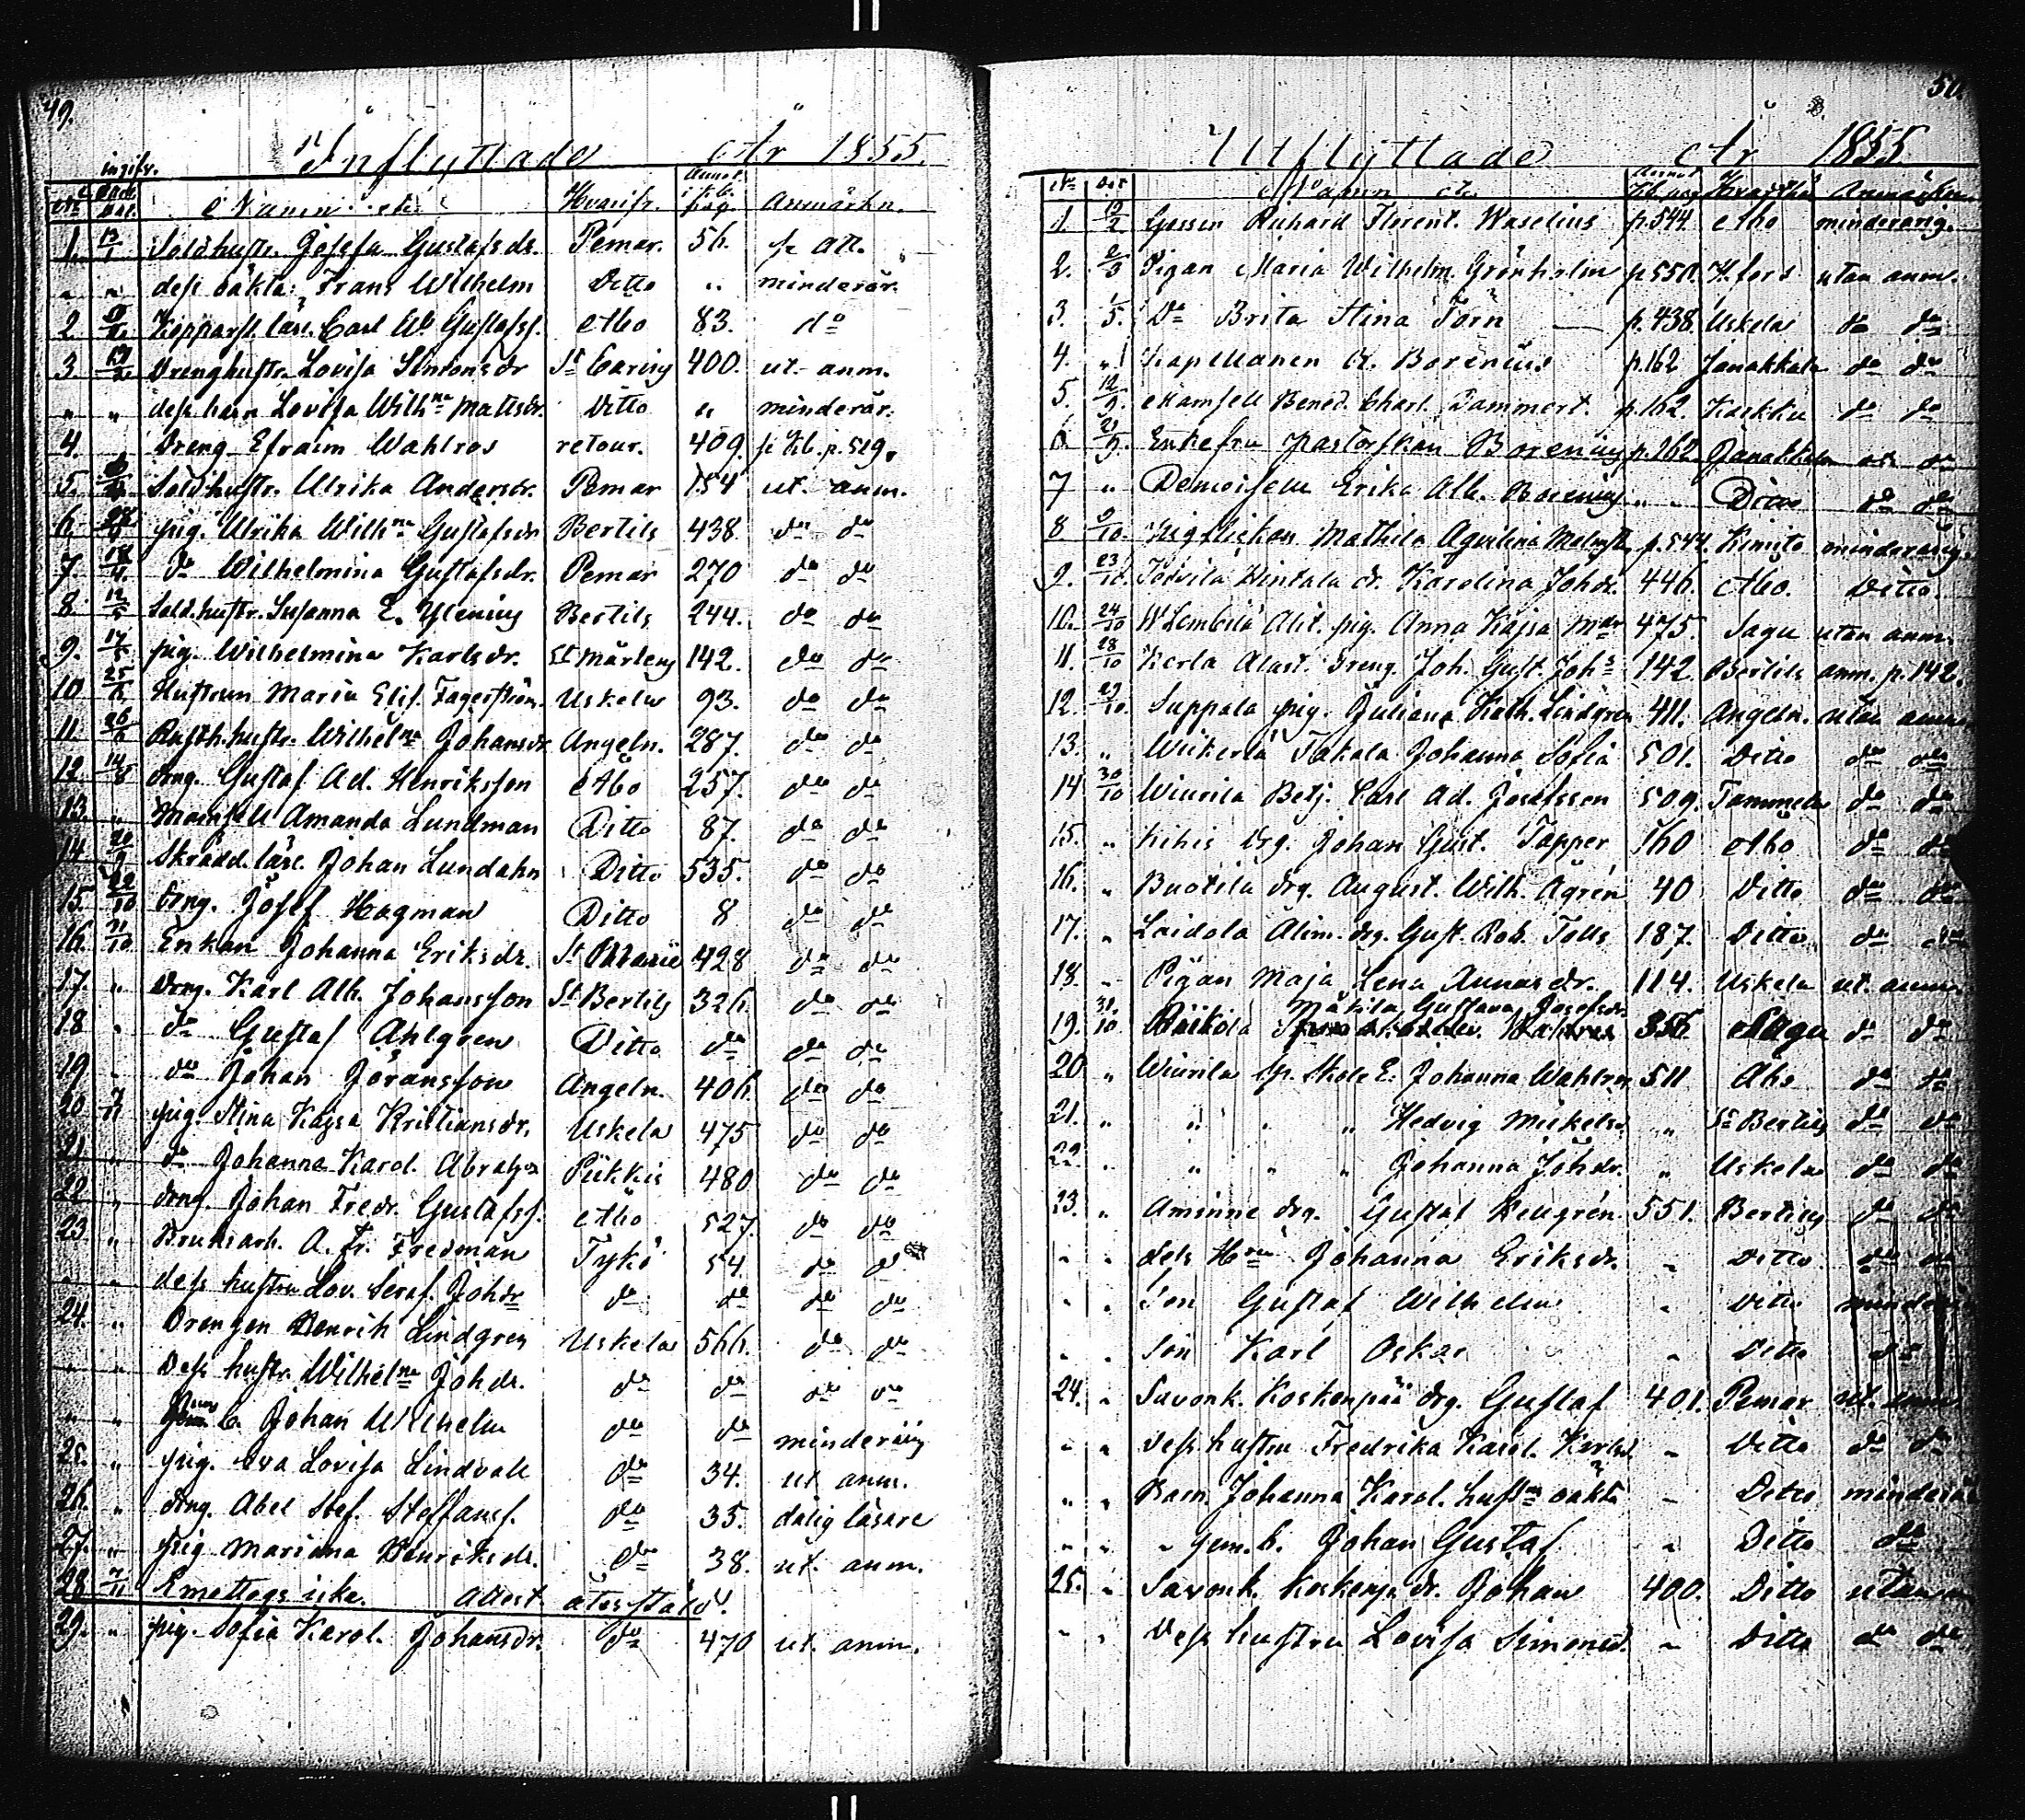 49.
Inflyttade År 1855.
ingifv.
No Namn etc Hvarifr. Annot. i k.b. pag. Anmärkn.
1. 13/1 Sold.hustr. Josefa Gustafsdr. Pemar. 56. se att.
" " dess oäkta: Frans Wilhelm Ditto " minderår.
2. Kopparsl. lärl. Carl W. Gustafss. Åbo 83. do
3. Drenghustr. Lovisa Simonsdr St Karins 400. ut. anm.
" " dess barn Lovisa Wilhna Mattsdr. Ditto " minderår.
4. Dreng Efraim Wahlros retour. 409. se Kb. p. 519.
5. Sold.hustr. Ulrika Andersdr. Pemar 154 ut. anm.
6. pig. Ulrika Wilhna Gustafsdr Bertils 438. do do
7. 18/4. do Wilhelmina Gustafsdr. Pemar 270 do do
8. 12/5 Sold.hustr. Susanna E. Ylenius Bertils 244. do do
9. pig. Wilhelmina Karlsdr. St Mårtens 142. do do
10. Hustrun Maria Elis. Fagerström. Uskela 93. do do
11. Rusth.hustr. Wilhelna Johansdr Angeln. 287. do do
12. 14/8 drng. Gustaf Ad. Henriksson Åbo 257. do do
13. " Mamsell Amanda Lundman Ditto 87. do do
14. Skrädd. lärl. Johan Lundahn Ditto 535. do do
15. 22/10 drng. Josef Hagman Ditto 8 do do
16. 31/10. Enkan Johanna Eriksdr. St Marie 428 do do
17. " drng. Karl Alb. Johansson St Bertils 326. do do
18 " do Gustaf Ahlgren Ditto do do do
19 " do Johan Jöransson Angeln. 406. do do
20. pig. Stina Kajsa Kristiansdr. Uskela 475 do do
21 " do Johanna Karol. Abrahs. Piikkis 480 do do
22. " drng. Johan Fredr. Gustafss. Åbo 527. do do
23. " Bruksarb. A. Fr. Fredman Tykö 54. do do
" " dess hustru Lov. Seraf. Johdr do do do do
24. " Drengen Henrik Lindgren Uskela 566. do do
" " Dess hustr. Wilhelna Johdr. do do do do
" " b. Johan Wilhelm do do minderårig
25. " pig. Eva Lovisa Lindvall do 34. ut anm.
26. " drng. Abel Stef. Steffanss. do 35. dålig läsare
27. " pig Mariana Henriksdr. do 38. ut. anm.
28. Emottogs icke. Attest återstäld.
29. " pig. Sofia Karol. Johansdr. do 470 ut. anm.
50.
Utflyttade År 1855
No Namn etc. Annot. Kb. pag Hvarthän Anmärkn.
1. 19/2 Gossen Richard Florent. Waselius p. 544. Åbo minderårig.
2. 2/3 Pigan Maria Wilhelm. Grönholm p. 550. H.fors utan anm.
3. 1/5. Do Brita Stina Törn p. 438. Uskela do do
4. " Kapellanen A. Borenius p. 162 Janakkala do do
5. 12/9. Mamsell Bened. Charl. Dammert. p. 162. Karkku do do
6. 21/9. Enkefru Pastorskan Borenius p. 162 Janakkala do do
7 " Demoiselle Erika Alb. Borenius " " Ditto do do
8 9/10. Pigflickan Mathilda Aquilina Malmst. p. 544. Kimito minderårig.
9. 23/10. Hintala dr. Karolina Johdr. 446. Åbo. Ditto.
10. 24/10 Alit. pig. Anna Kajsa 475. Sagu utan anm.
11. 28/10 Kerla Alast. dreng. Joh. Gust. Johs 142 Bertils anm. p. 142.
12. 29/10. Suppala pig. Juliana Kath. Lindgren 411. Angeln. utan anm.
13. " Wiikerlä Takala Johanna Sofia 501. Ditto do do
14 30/10 Wiurila Betj. Carl Ad. Josefsson 509. Tammela do do
15. " Kihis drg. Johan Gust. Tapper 160 Åbo do do
16. " Buotila drg. August. Wilh. Ågrén 40 Ditto do do
17. " Laidola Alim. drg. Gust. Rob. Tolls 187. Ditto do do
18. " Pigan Maja Lena Aunasdr. 114. Uskela ut. anm.
19. 31/10 Mäkila Gustava Josefsdr. 356. Sagu do do
20 " Wiurila Sp. Skole E. Johanna Wahlros 511 Åbo do do
21. " " " " Hedvig Mickelsd. " St Bertils do do
22. " " " " Johanna Johdr. " Uskela do do
23. " Aminne drg. Gustaf 551. Bertils do do
" " dess Hru Johanna Eriksdr. " Ditto do do
" " Son Gustaf Wilhelm " Ditto minderår
" " Son Karl Oskar " Ditto do
24. " Savonk. Koskenpää drg. Gustaf 401. Pemar ut. anm
" " Dess hustru Fredrika Karol. Karlsd. " Ditto do do
" " Barn. Johanna Karol. hustrs oäkta " Ditto minderår
" " " gem. b. Johan Gustaf " Ditto do
25. " Savonk. Koskenp. dr. Johan 400. Ditto utan an
" " Dess hustru Lovisa Simonsd. " Ditto do do